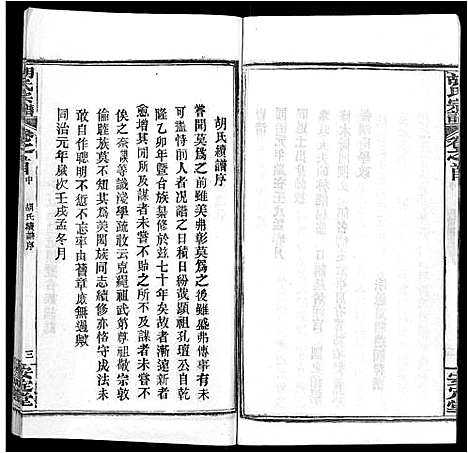 胡氏宗譜
卷之首
安定堂
胡氏續譜序
嘗聞莫為之前雖美弗彰莫為之後雖盛弗傳事有未
可盡恃前人者况譜之日積日紛哉顯祖孔瑄公自乾
隆乙卯年暨合族纂修於茲七十年矣故者漸遠新者
愈增其前之所不及謀者未嘗不貽之所不及謀者未嘗不
俟之奈謀等識淺學疏敢云克繩祖武第尊祖敬宗敦
倫睦族莫不知其為美閤族同志續修亦恪守成法未
敢自作聰明不愆不忘率由舊章庶無過歟
同治元年歲次壬戌孟冬月
胡氏宗譜
卷之首
胡氏續譜序
三
安定堂